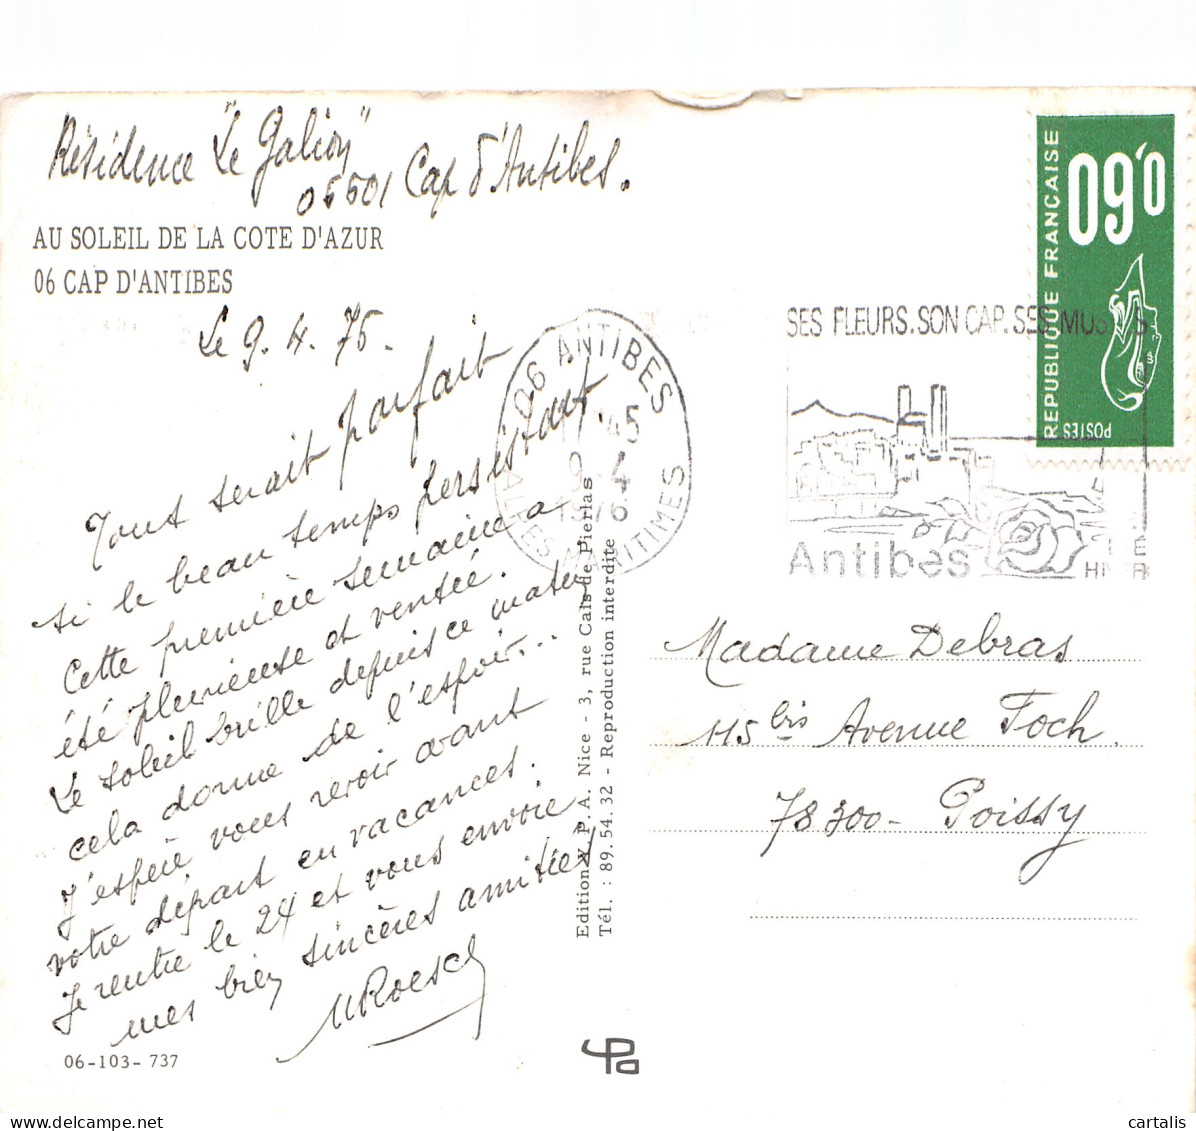 Résidence "Le Galion"
06601 Cap d'Antibes.
AU SOLEIL DE LA COTE D'AZUR
06 CAP D'ANTIBES
Le 9.4.76.
Tout serait parfait
si le beau temps persistait.
Cette première semaine a
été pluvieuse et ventée.
Le soleil brille depuis ce matin
cela donne de l'espoir...
J'espère vous revoir avant
votre départ en vacances.
Je rentre le 24 et vous envoie
mes bien sincères amitiés
MRoesch
06-103-737
Editions V.P.A. Nice - 3, rue Cais de Pierlas
Tél. : 89.54.32 - Reproduction interdite
06 ANTIBES
ALPES MARITIMES
9-4
1976
SES FLEURS. SON CAP. SES MUSEES
Antibes
HIVER
0,60
REPUBLIQUE FRANÇAISE
POSTES
Madame Debras
115 bis Avenue Foch
78300- Poissy
cartalis